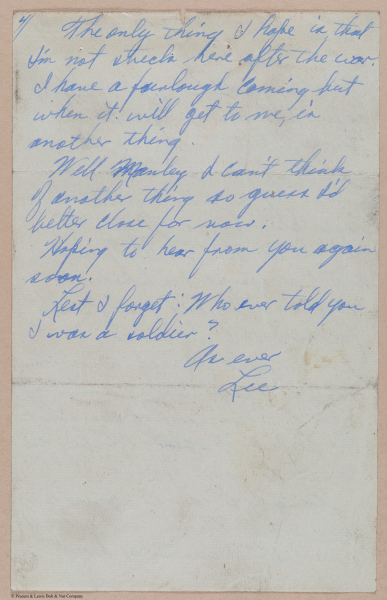 4/ The only thing I hope is that
I'm not stuck here after the war.
I have a furlough coming but
when it will get to me, is
another thing.
Well Manley I can't think
of another thing so guess I'd
better close for now.
Hoping to hear from you again
soon.
Lest I forget; Who ever told you
I was a soldier?
As ever
Lee